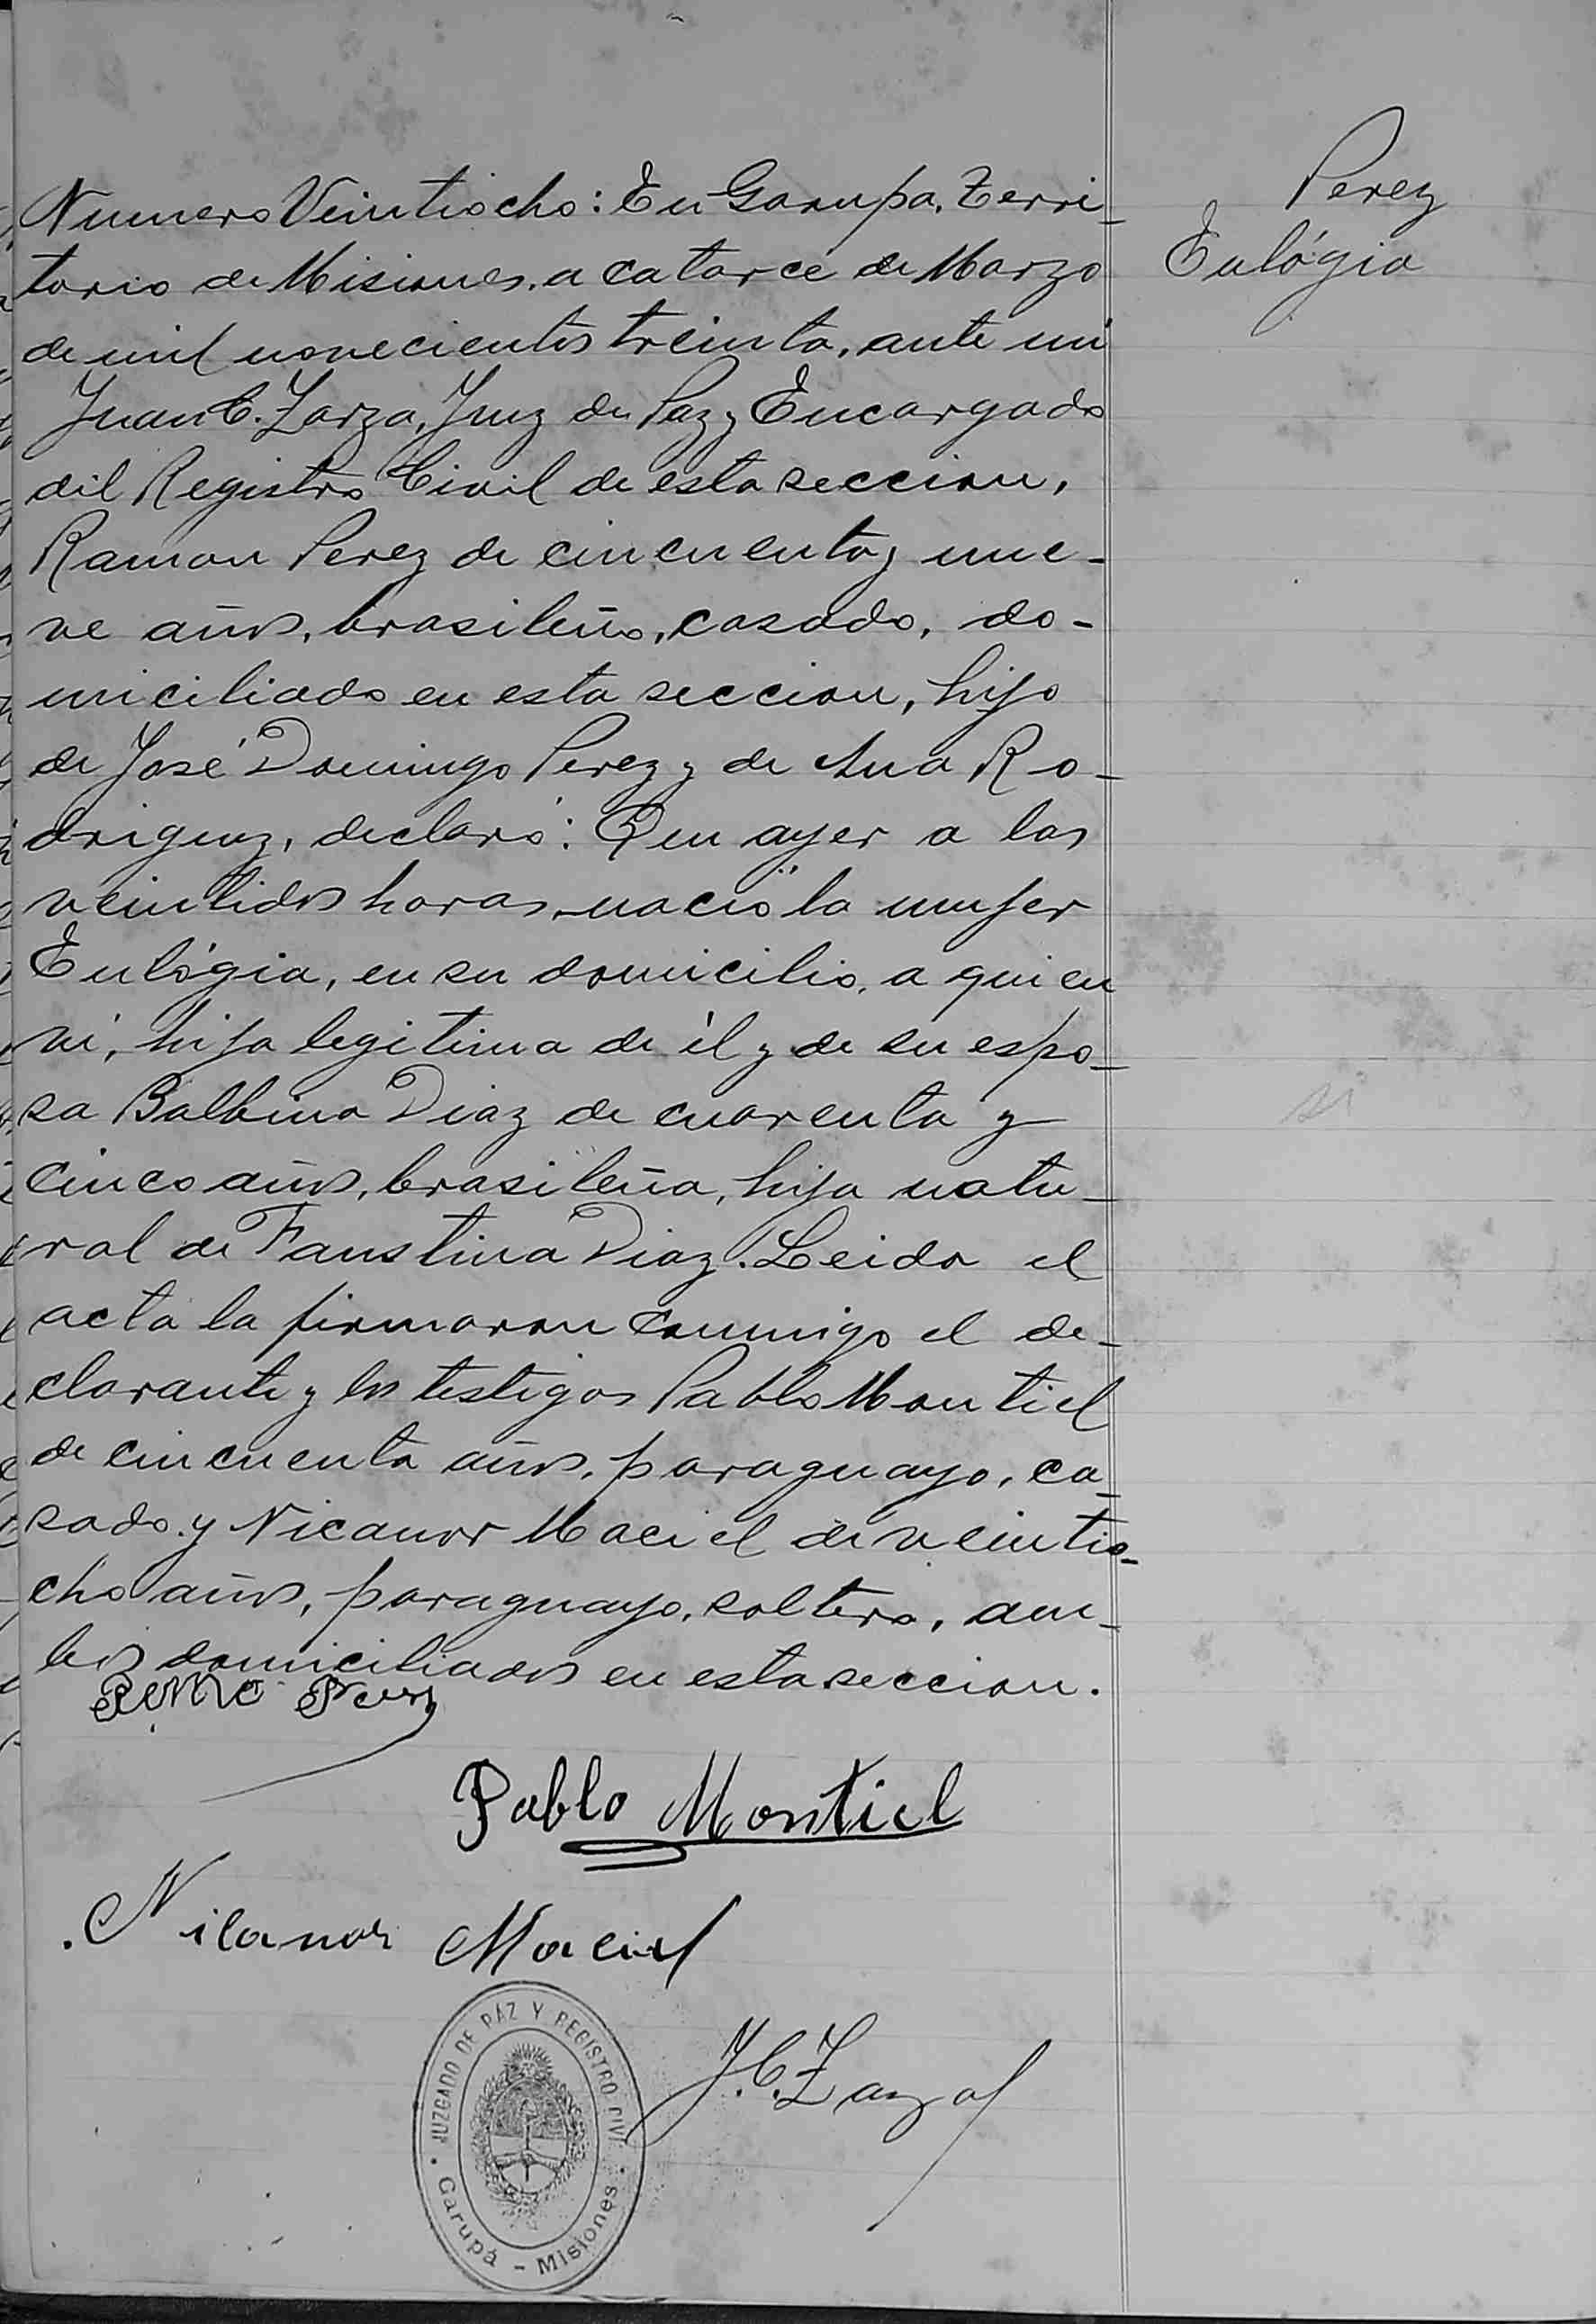 Perez
Eulógia
Numero Veintiocho: En Garupa, Terri-
torio de Misiones, a catorce de Marzo
de mil novecientos treinta, ante mi
Juan C. Zarza, Juez de Paz y Encargado
del Registro Civil de esta seccion,
Ramon Perez de cincuenta y nue-
ve años, brasileño, casado, do-
miciliado en esta seccion, hijo
de José Domingo Perez y de Ana Ro-
driguez, declaró: Que ayer a las
veintidos horas, nació la mujer
Eulógia, en su domicilio, a quien
ví, hija legitima de él y de su espo-
sa Balbina Diaz de cuarenta y
cinco años, brasileña, hija natu-
ral de Faustina Diaz. Leida el
acta la firmaron conmigo el de-
clarante y los testigos Pablo Montiel
de cincuenta años, paraguayo, ca-
sado y Nicanor Maciel de veintio-
cho años, paraguayo, soltero, am-
bos domiciliados en esta seccion.
Pablo Montiel
Nicanor Maciel
J. C. Zarza
JUZGADO DE PAZ Y REGISTRO CIVIL
Garupá - Misiones